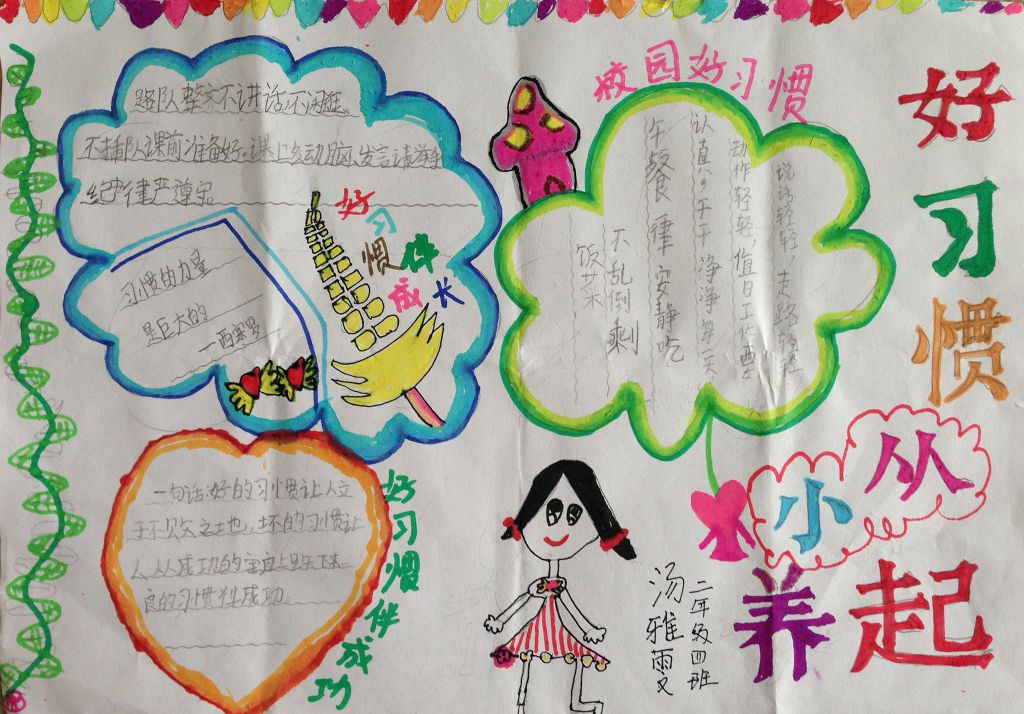 好习惯
从小
养起
校园好习惯
说话轻轻 走路轻轻
动作轻轻,值日工作要
认真,干干净净每一天
午餐 律 安静吃
不乱倒剩
饭菜
路队整齐不讲话,不
不插队课前准备好.课上多动脑、发言请举手
纪律严遵守
好习惯伴成长
习惯的力量
是巨大的
—西塞罗
一句话:好的习惯让人立
于不败之地,坏的习惯让
人从成功的宝座上跌下来。
良的习惯伴成功。
好习惯伴成功
二年级四班
汤雅雯